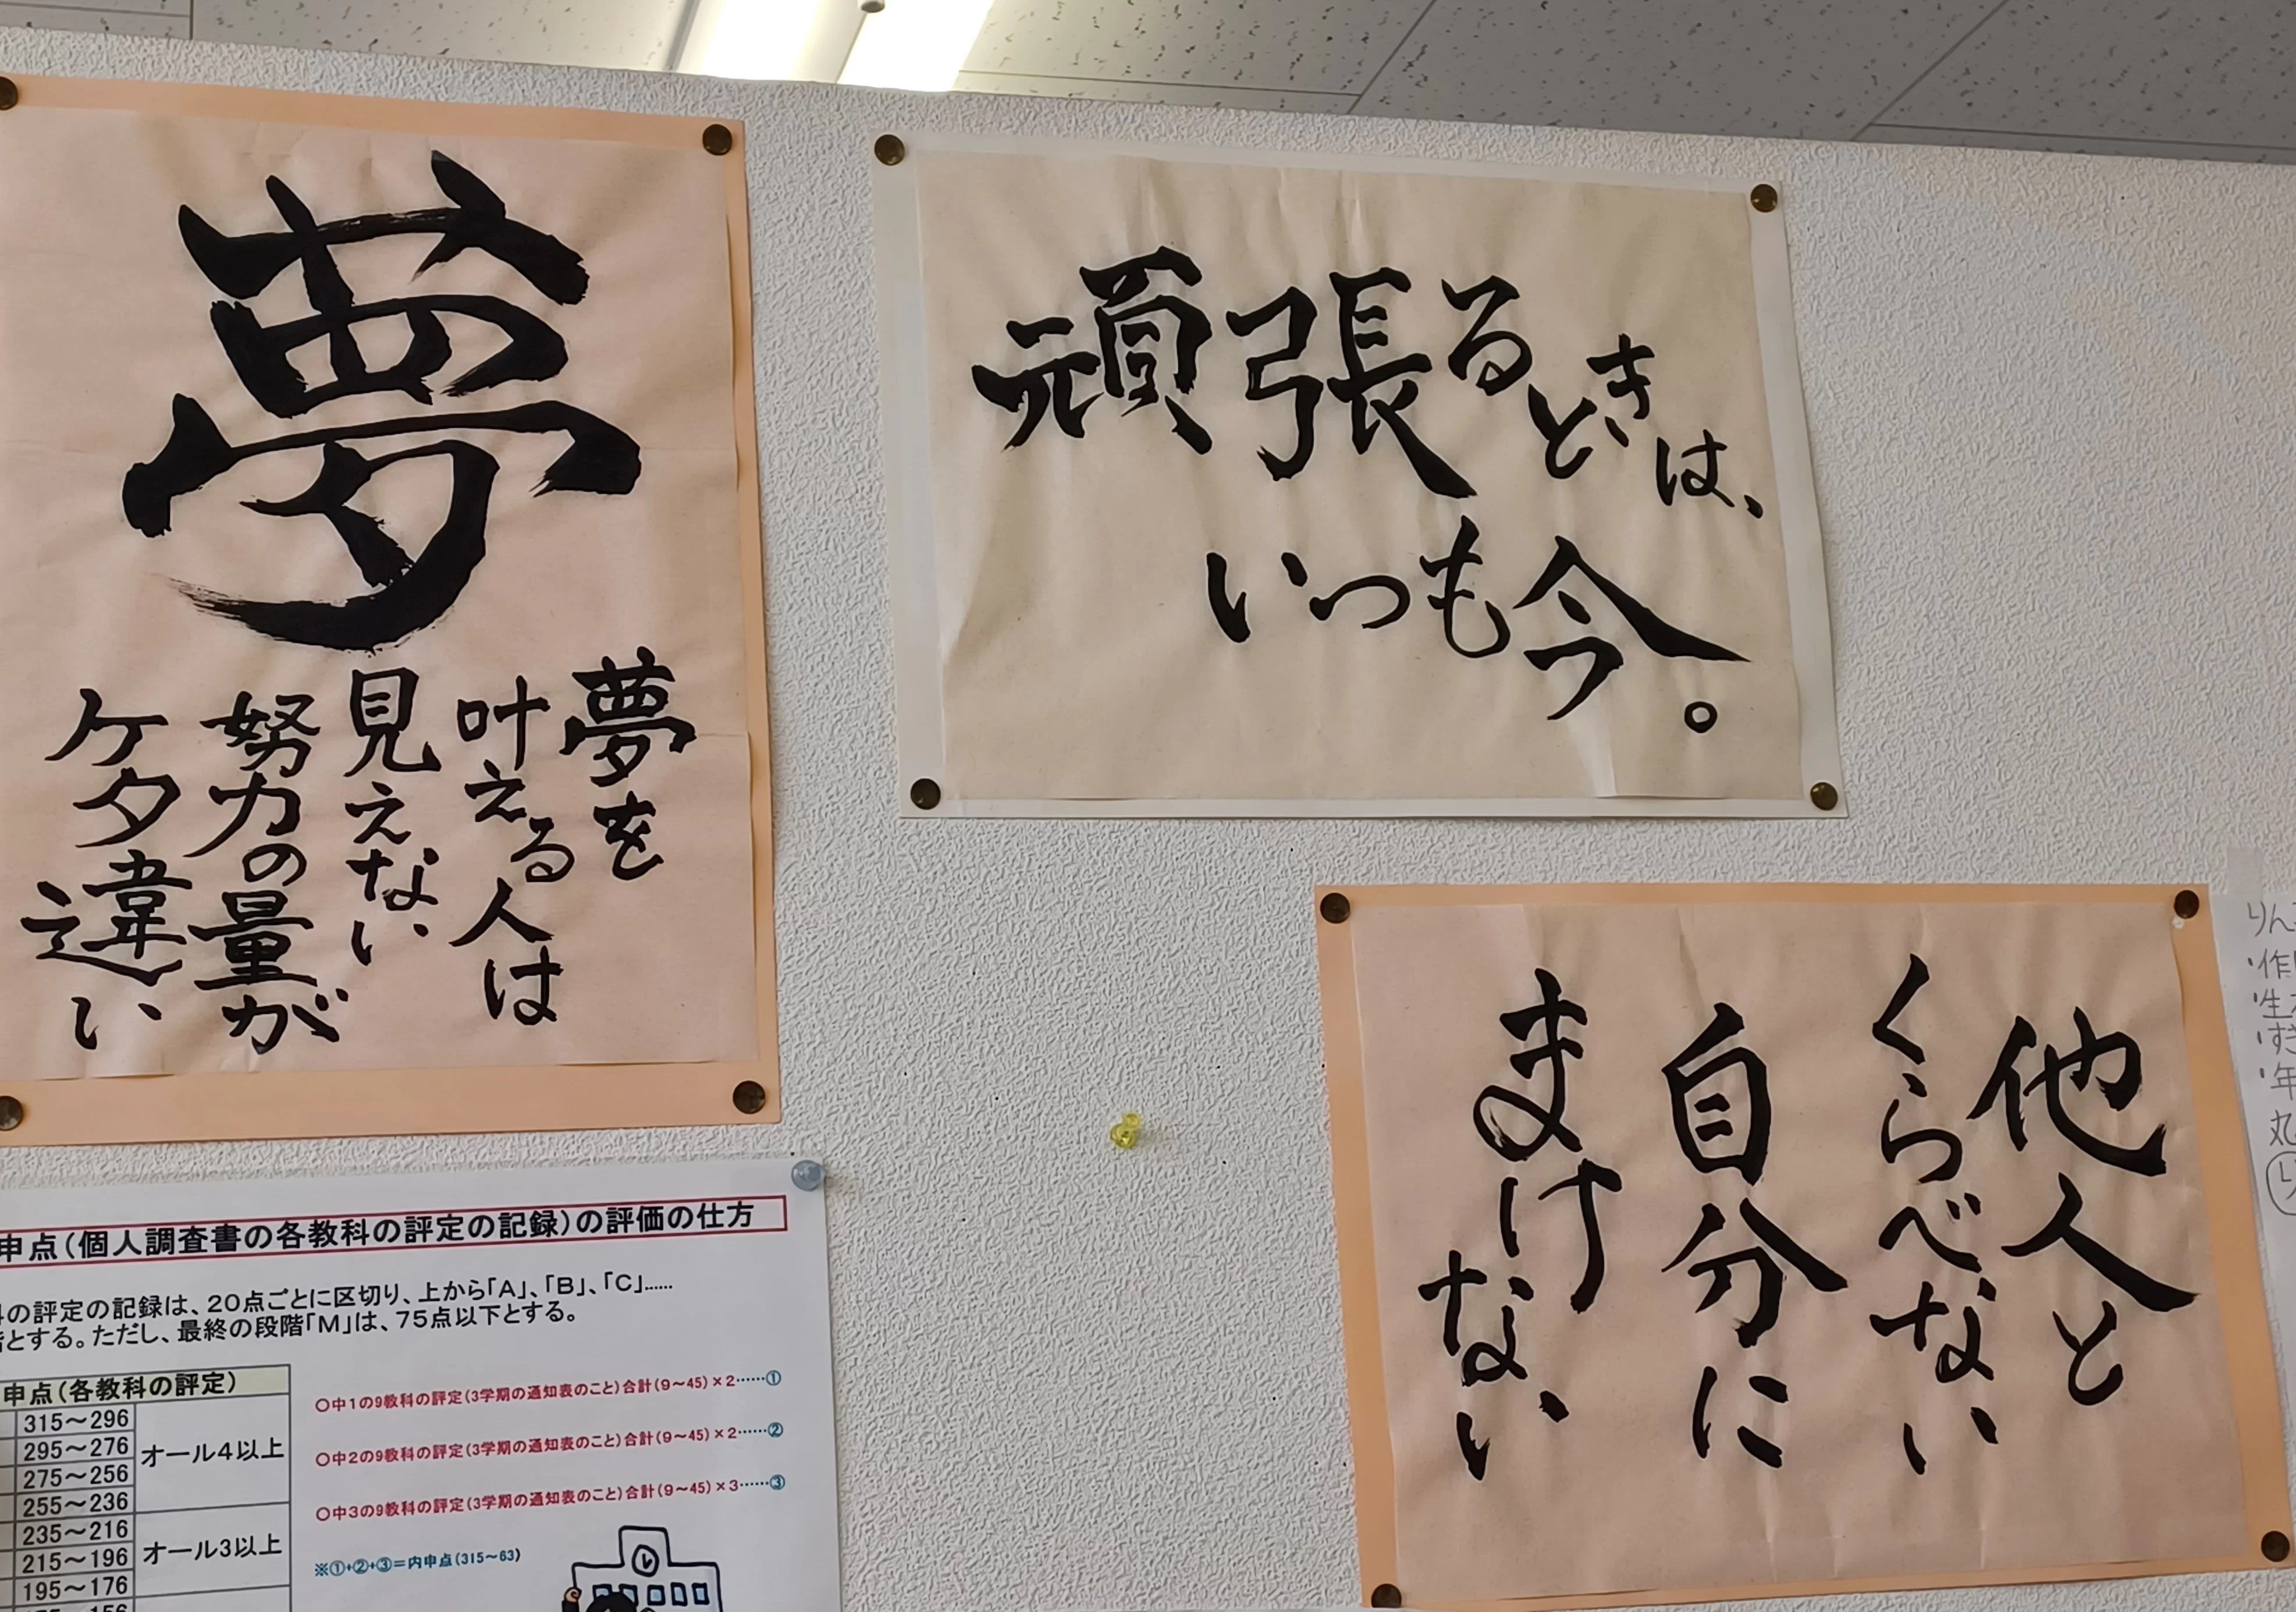 夢
夢を
叶える人は
見えない
努力の量が
ケタ違い
頑張るときは、
いつも今。
他人と
くらべない
自分に
まけない
申点(個人調査書の各教科の評定の記録)の評価の仕方
の評定の記録は、20点ごとに区切り、上から「A」、「B」、「C」……
とする。ただし、最終の段階「M」は、75点以下とする。
申点(各教科の評定)
315~296
295~276
275~256
255~236
オール4以上
235~216
215~196
195~176
オール3以上
○中1の9教科の評定(3学期の通知表のこと)合計(9~45)×2……①
○中2の9教科の評定(3学期の通知表のこと)合計(9~45)×2……②
○中3の9教科の評定(3学期の通知表のこと)合計(9~45)×3……③
※①+②+③=内申点(315~63)
りん
・作
・生
・す
・年
丸